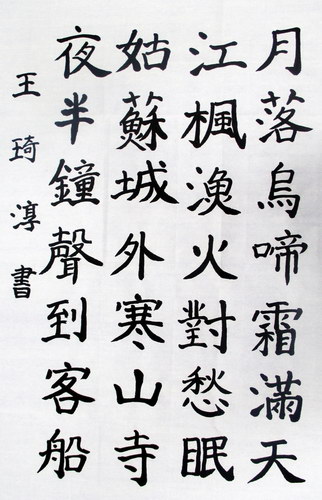 月落烏啼霜滿天
江楓漁火對愁眠
姑蘇城外寒山寺
夜半鐘聲到客船
王琦淳書